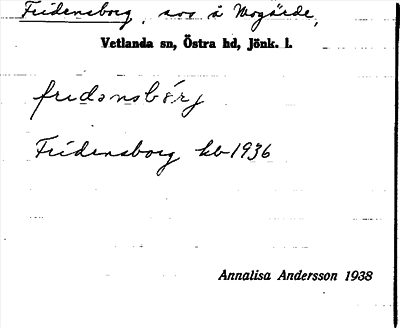 Fridensborg, sos å Mogärde,
Vetlanda sn, Östra hd, Jönk. l.
fridənsbórj
Fridensborg kb 1936
Annalisa Andersson 1938